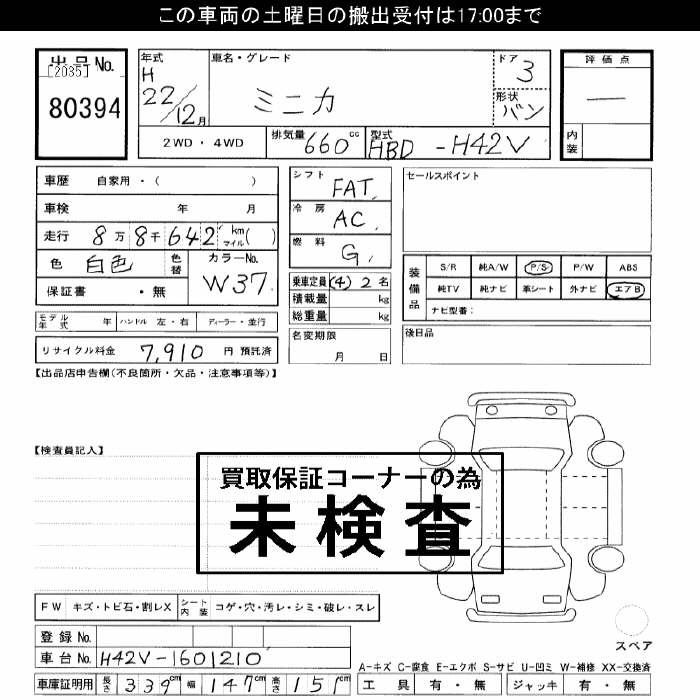 この車両の土曜日の搬出受付は17:00まで
出品No.
[2035]
80394
年式
H
22/12月
車名・グレード
ミニカ
ドア 3
形状 バン
評価点
—
内装
2WD・4WD
排気量 660cc
型式 HBD-H42V
車歴 自家用・( )
車検 年 月
走行 8万8千642 km マイル( )
色 白色
色替
カラーNo. W37
保証書 ・無
シフト FAT.
冷房 AC.
燃料 G.
乗車定員 (4) 2名
積載量 kg
総重量 kg
セールスポイント
装備品
S/R 純A/W P/S P/W ABS
純TV 純ナビ 革シート 外ナビ エアB
ナビ型番:
モデル年式 年 ハンドル 左・右 ディーラー・並行
リサイクル料金 7,910 円 預託済
名変期限
月 日
後日品
【出品店申告欄(不良箇所・欠品・注意事項等)】
【検査員記入】
買取保証コーナーの為
未検査
FW キズ・トビ石・割レX シート内装 コゲ・穴・汚レ・シミ・破レ・スレ
登録No.
車台No. H42V-1601210
車庫証明用 長さ 339cm 幅 147cm 高さ 151cm
スペア
A-キズ C-腐食 E-エクボ S-サビ U-凹ミ W-補修 XX-交換済
工具 有・無 ジャッキ 有・無